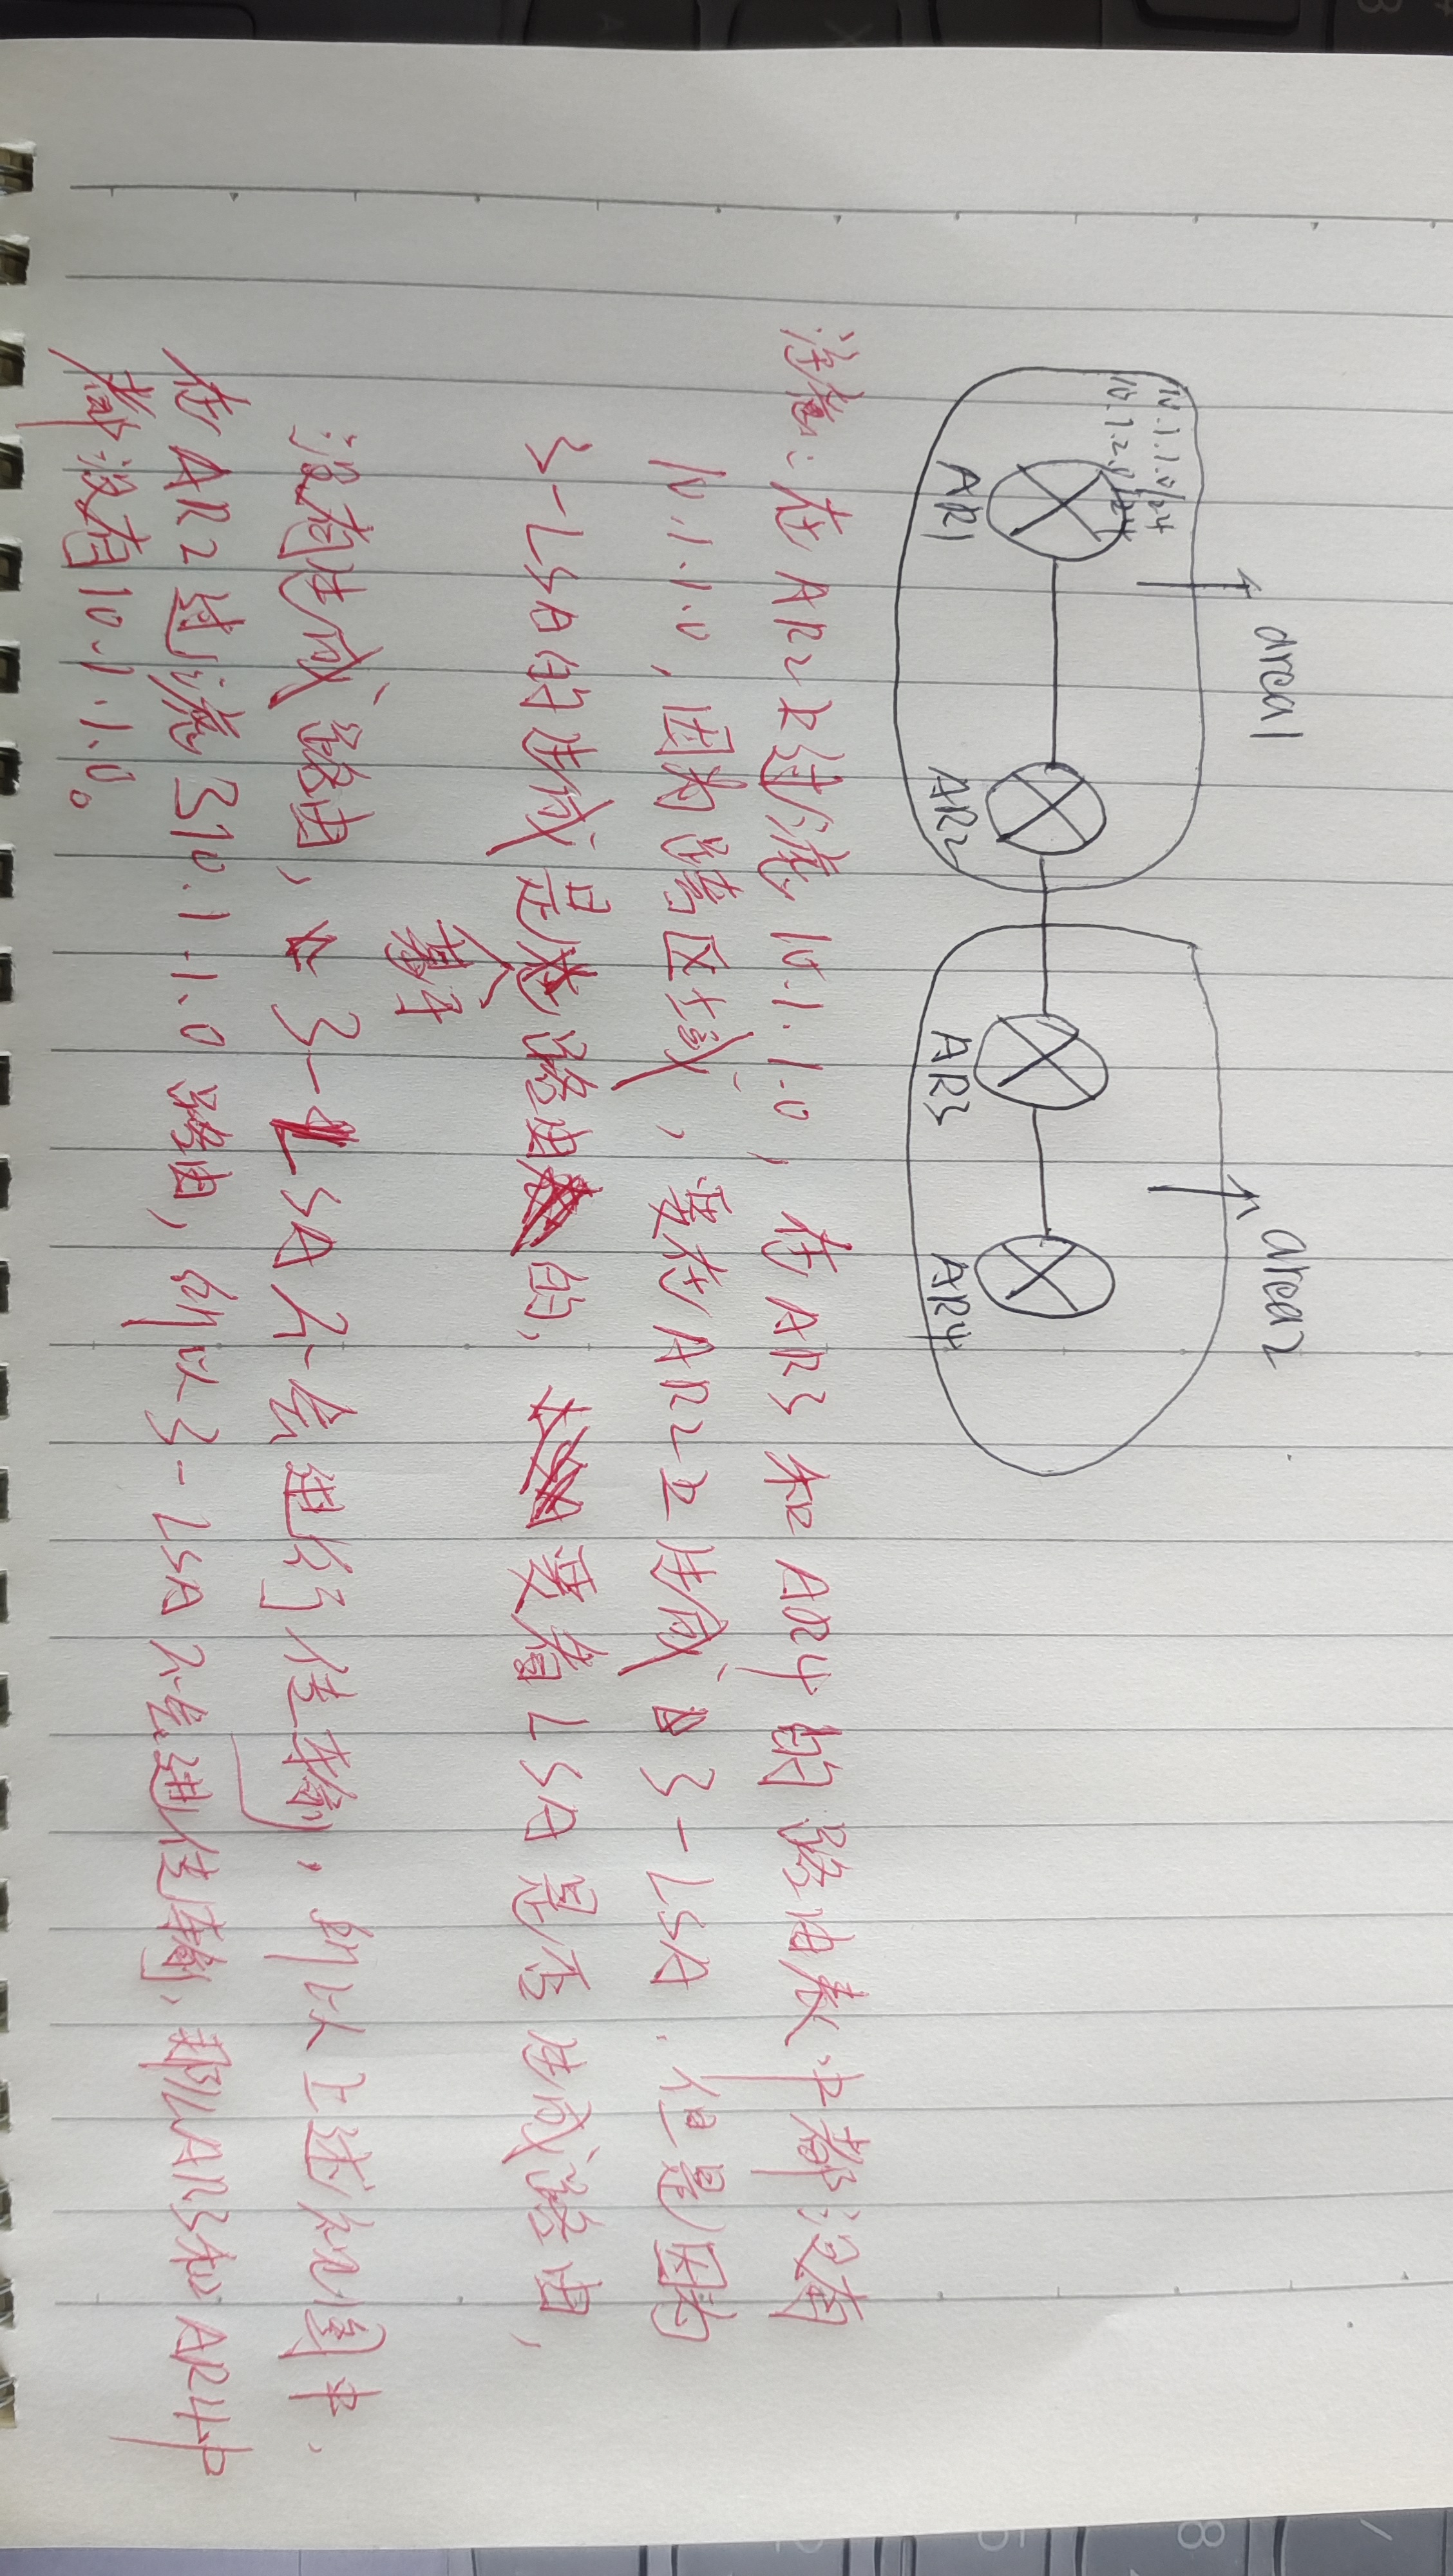 area1
area2
10.1.1.0/24
10.1.2.0/24
AR1
AR2
AR3
AR4
注意:在AR2上过滤10.1.1.0,在AR3和AR4的路由表中都没有
10.1.1.0,因为跨区域,要在AR2上生成3-LSA.但是因为
3-LSA的生成是基于路由的,要看LSA是否生成路由,
没有生成路由,3-LSA不会进行传输,所以上述如图中,
在AR2过滤了10.1.1.0路由,所以3-LSA不会进传输,那么AR3和AR4中
都没有10.1.1.0。